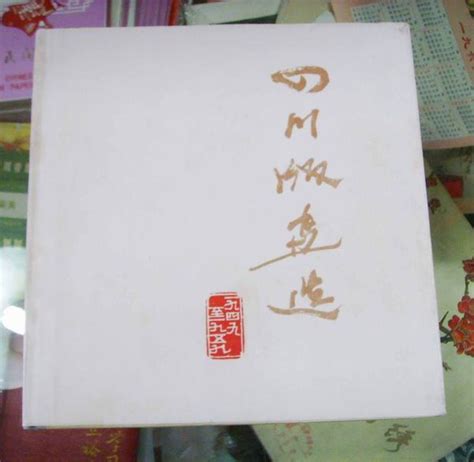 四川版画选
一九四九
至一九五九